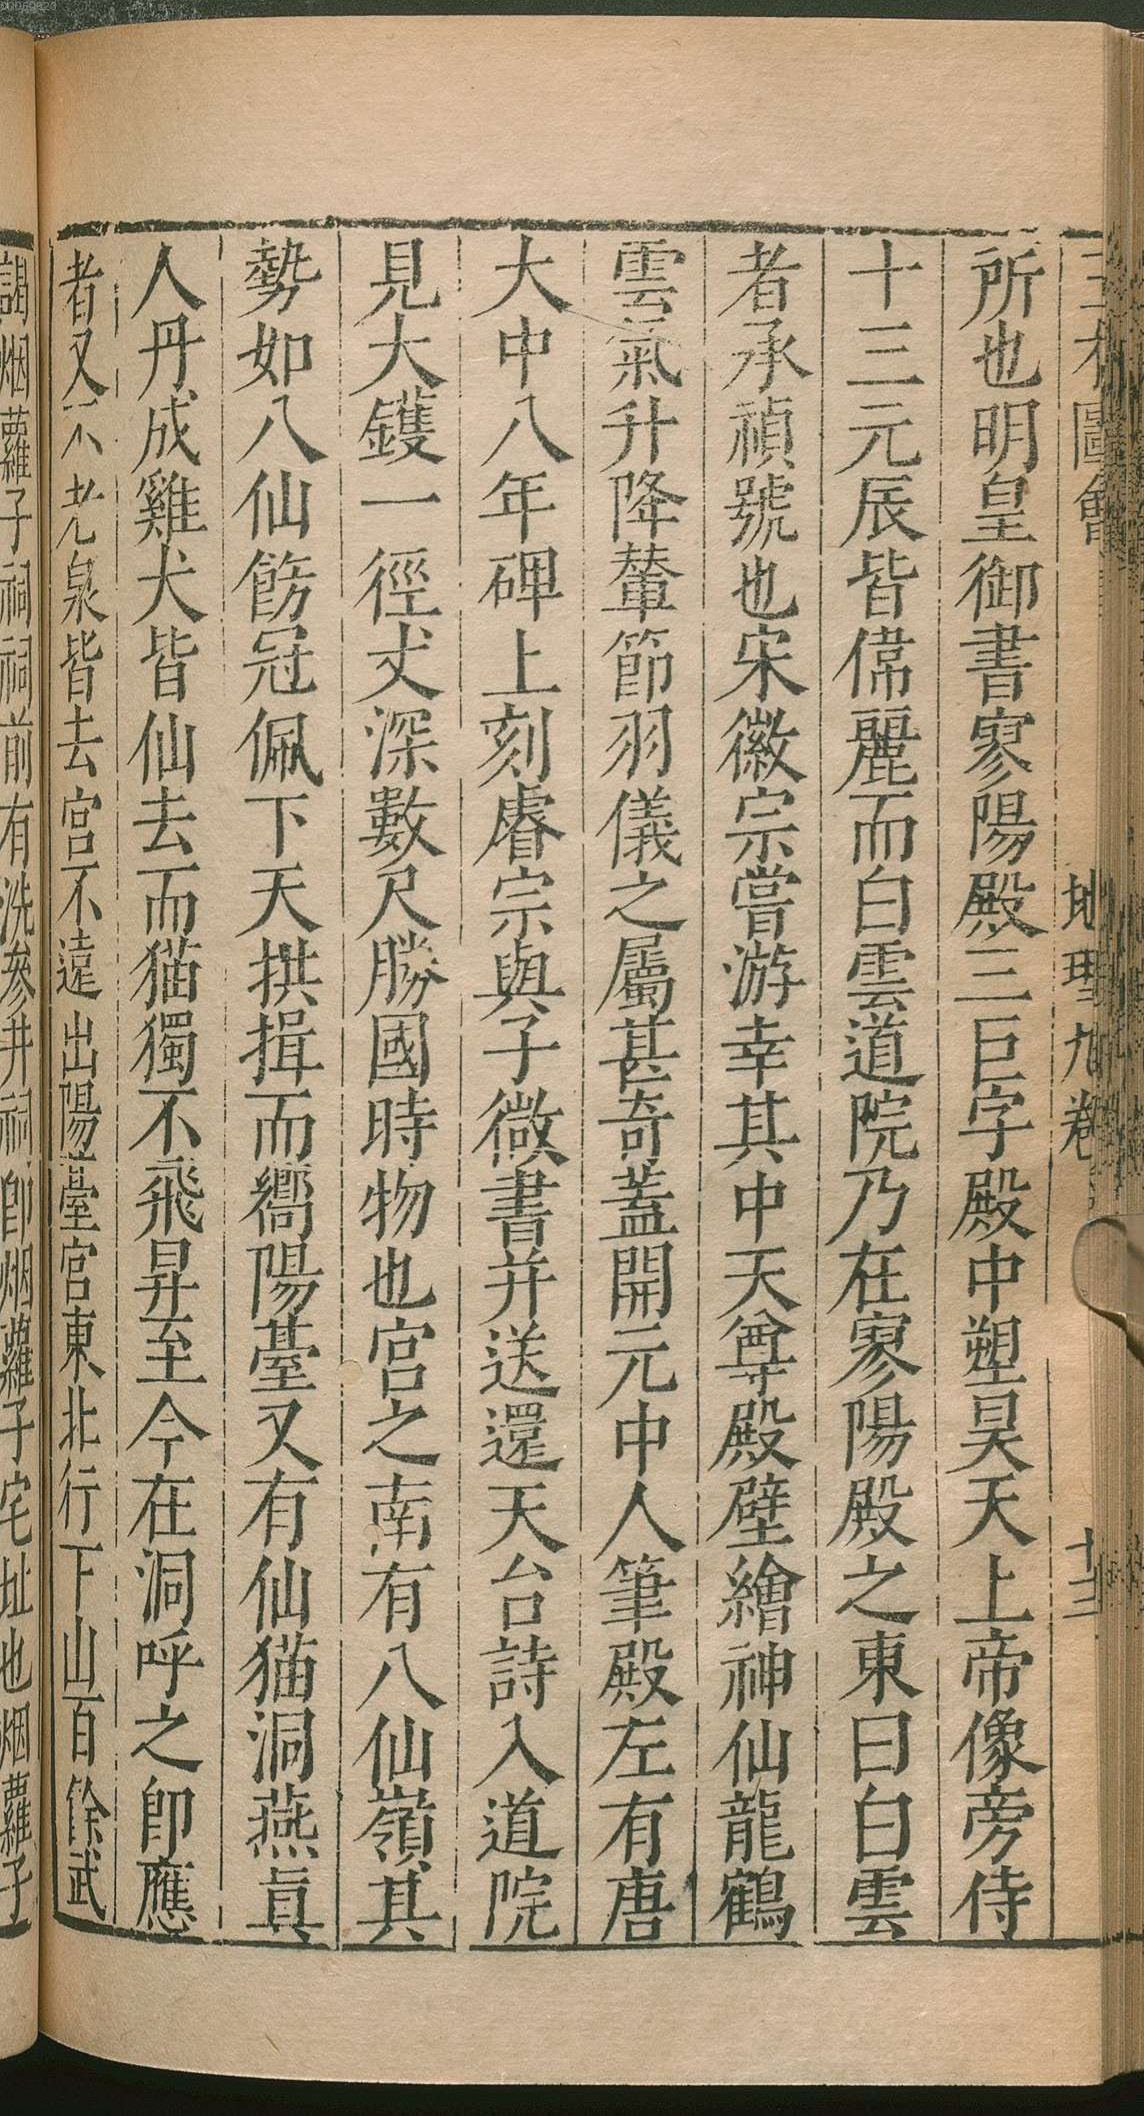 三才圖會 地理九卷 十三
所也明皇御書寥陽殿三巨字殿中塑昊天上帝像旁侍
十三元辰皆偉麗而白雲道院乃在寥陽殿之東曰白雲
者承禎號也宋徽宗嘗游幸其中天尊殿壁繪神仙龍鶴
雲氣升降輦節羽儀之屬甚奇蓋開元中人筆殿左有唐
大中八年碑上刻睿宗與子微書并送還天台詩入道院
見大鑊一徑丈深數尺勝國時物也宮之南有八仙嶺其
勢如八仙餝冠佩下天拱揖而嚮陽臺又有仙猫洞燕眞
人丹成雞犬皆仙去而猫獨不飛昇至今在洞呼之即應
者又不老泉皆去宮不遠出陽臺宮東北行下山百餘武
謁烟蘿子祠祠前有洗參井祠即烟蘿子宅址也烟蘿子